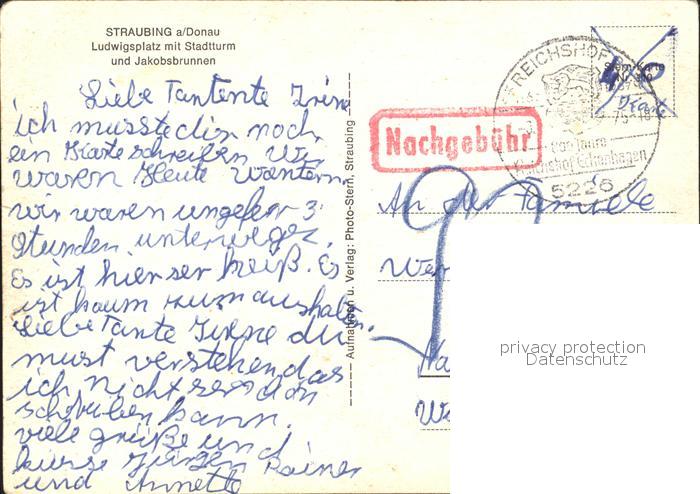 STRAUBING a/Donau
Ludwigsplatz mit Stadtturm
und Jakobsbrunnen
Liebe Tantente Irene
ich musste dir noch
ein Karte schreiben Wir
waren Heute wantern
wir waren ungefer 3
Stunden unterweges.
Es ist hier ser heiß. Es
ist kaum rum aushalen.
Liebe Tante Irene du
must verstehen das
ich nicht ser schön
schreiben kann.
viele grüße und
küsse Jürgen Rainer
und Annette
Aufnahmen u. Verlag: Photo-Stern, Straubing
Nachgebühr
REICHSHOF
Reichshof Eckenhagen
5226
Stern-Karte
Karte
An der Familie
privacy protection
Datenschutz